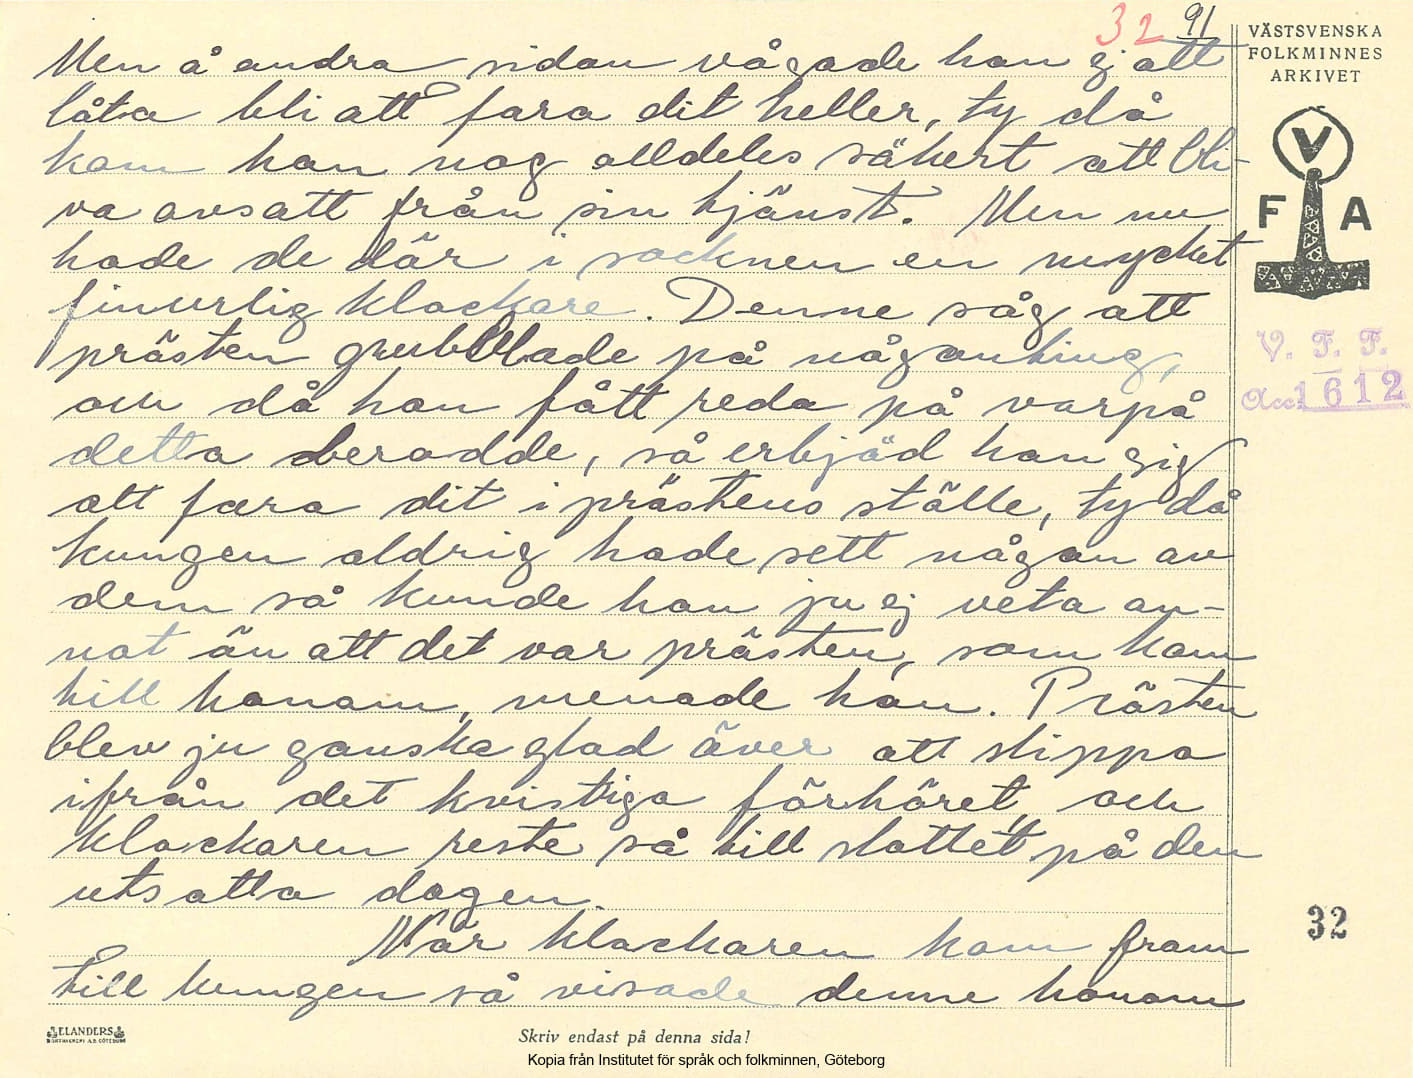 32 91
VÄSTSVENSKA
FOLKMINNES
ARKIVET
V
F A
V. F. F.
Acc. 1612
Men å andra sidan vågade han ej att
låta bli att fara dit heller, ty då
kom han nog alldeles säkert att bli-
va avsatt från sin tjänst. Men nu
hade de där i socknen en mycket
finurlig klockare. Denne såg att
prästen grubblade på någonting,
och då han fått reda på varpå
detta berodde, så erbjöd han sig
att fara dit i prästens ställe, ty då
kungen aldrig hade sett någon av
dem så kunde han ju ej veta an-
nat än att det var prästen, som kom
till honom, menade han. Prästen
blev ju ganska glad över att slippa
ifrån det kvistiga förhöret, och
klockaren reste så till slottet på den
utsatta dagen.
När klockaren kom fram
till kungen så visade denne honom
32
ELANDERS
BOKTRYCKERI A.B. GÖTEBORG
Skriv endast på denna sida!
Kopia från Institutet för språk och folkminnen, Göteborg